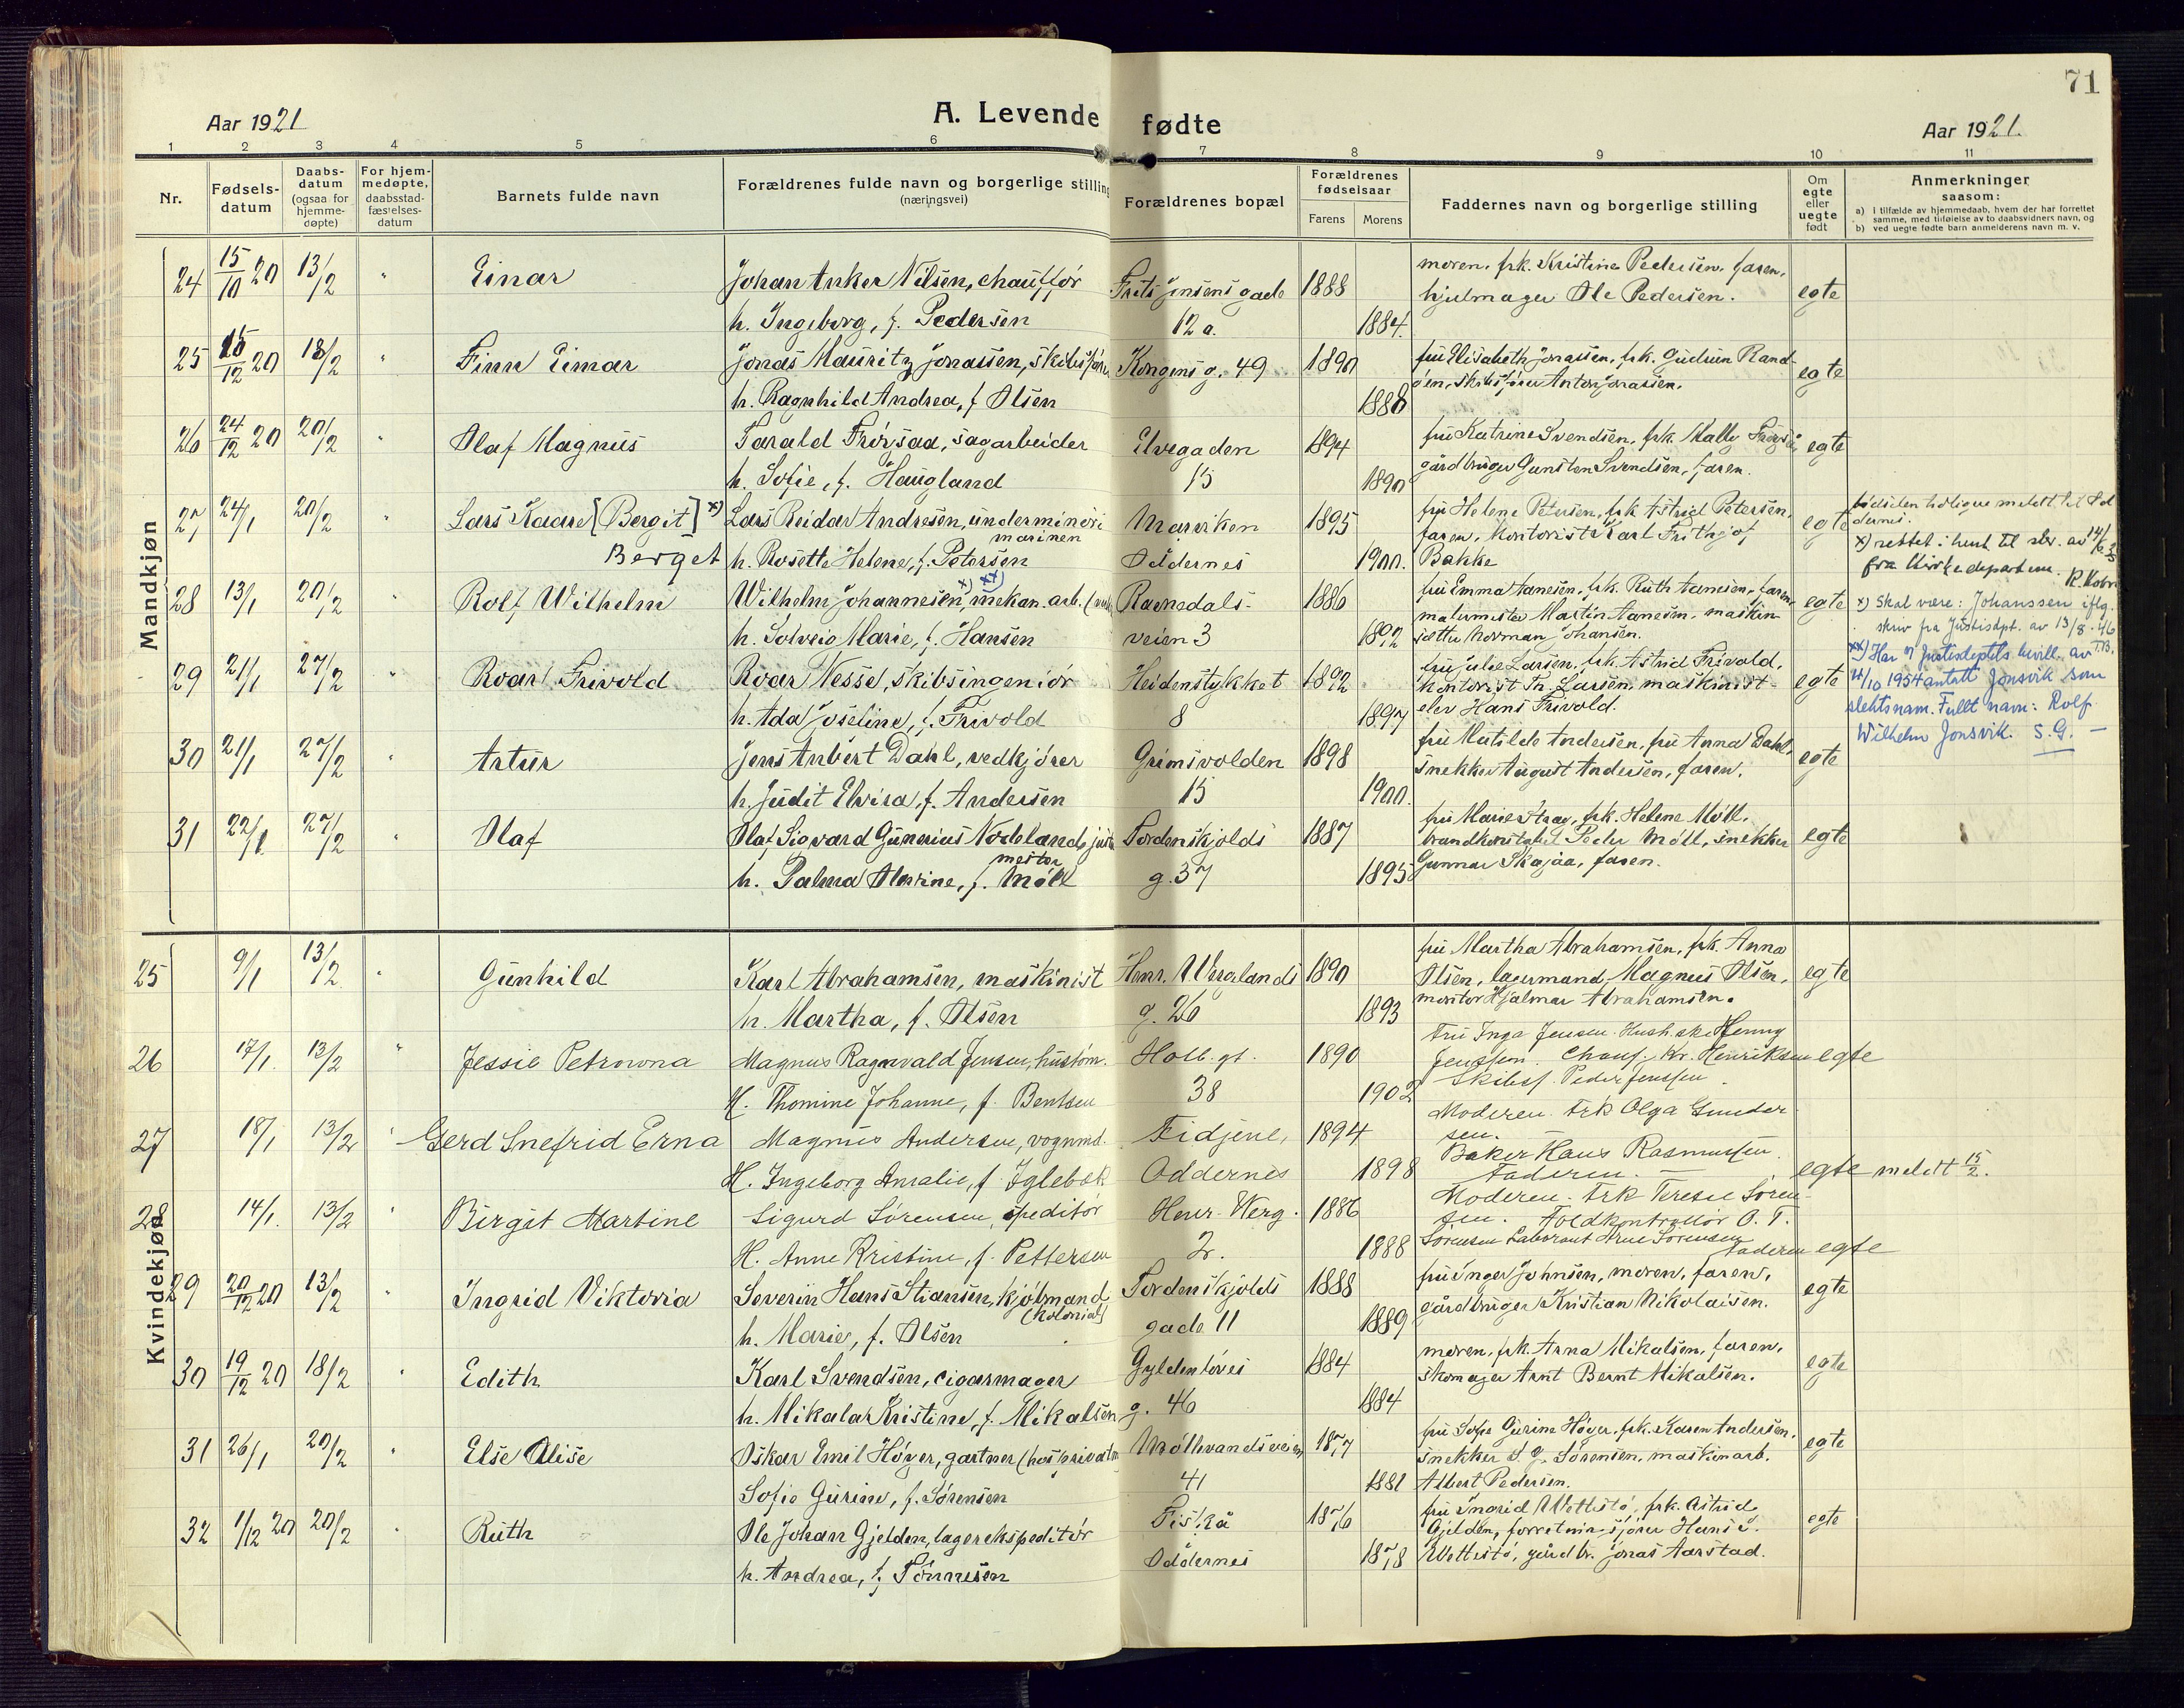 71
Aar 1921
A. Levende fødte
Aar 1921.
1 2 3 4 5 6 7 8 9 10 11
Nr.
Fødsels-datum
Daabs-datum (ogsaa for hjemme-døpte)
For hjem-medøpte, daabsstad-fæstelses-datum
Barnets fulde navn
Forældrenes fulde navn og borgerlige stilling
(næringsvei)
Forældrenes bopæl
Forældrenes fødselsaar
Farens Morens
Faddernes navn og borgerlige stilling
Om egte eller uegte født
Anmerkninger
saasom:
a) i tilfælde av hjemmedaab, hvem der har forrettet samme, med tilføielse av to daabsvidners navn, og
b) ved uegte fødte barn anmelderens navn m. v.
Mandkjøn
24 15/10 20 13/2 " Einar Johan Anker Nilsen, chauffør Frits Jensens gade 1888 moren, frk. Kristine Pedersen, faren, egte
hjulmager Ole Pedersen.
h. Ingeborg, f. Pedersen 12 a. 1884.
25 15/12 20 18/2 " Finn Eimar Jonas Mauritz Jonassen, skibsfører Kongens g. 49 1890 fru Elisabeth Jonassen, frk. Gudrun Rand- egte
øen, skibsfører Anton Jonassen.
h. Ragnhild Andrea, f Olsen 1888
26 24/12 20 20/2 " Olaf Magnus Tarald Frøysaa, sagarbeider Elvegaden 1894 fru Katrine Svendsen, frk. Mally egte
gårdbruger Gunsten Svendsen, faren.
h. Sofie, f. Haugland 15 1890
27 24/1 20/2 Lars Kaare [Bergit] x) Lars Reidar Andresen, underminør i Marviken 1895 fru Helene Petersen, frk Astrid Petersen, egte
marinen faren, kontorist Karl Frithjof
Berget h. Rosette Helene, f. Petersen Oddernes 1900. Bakke
fødselen tidligere meldt til Oddernes.
x) rettet i henh. til skr. av 14/6
fra Kirkedepartem.
28 13/1 20/2 " Rolf Wilhelm Wilhelm Johannesen, x) mekan. xx) arb. Ravnedals- 1886 fru Emma Aanesen, frk. Ruth Aanesen, faren, egte
malermester Martin Aanesen, maskin-
h. Solveig Marie, f. Hansen veien 3 1892 sætter Norman Johansen.
x) Skal være: Johanssen iflg.
skriv fra Justisdpt. av 13/8-46
xx) Har v/ Justisdeptets bevill. av
4/10 1954 antatt Jonsvik som
slektsnam. Fullt navn: Rolf
Wilhelm Jonsvik. S.G. —
29 21/1 27/2 " Roar Frivold Roar Nesse, skibsingeniør Heidenstykket 1892 fru Julie Larsen, frk. Astrid Frivold, egte
kontorist Th Larsen, maskinist-
h. Ada Joseline, f. Frivold 8 1897 elev Hans Frivold.
30 21/1 27/2 " Artur Jens Anbert Dahl, vedkjører Grimsvolden 1898 fru Matilde Andersen, fru Anna Dahl, egte
snekker August Andersen, faren.
h. Judit Elvira, f. Andersen 15 1900.
31 22/1 27/2 " Olaf Olaf Sigvard Gunerius Nodeland, Tordenskjolds 1887 fru Marie Aray, frk. Helene Møll, egte
mester brandkonstabel Peder Møll, snekker
h. Palma Alvine, f. Møll g. 37 1895 Gunnar Skajaa, faren.
Kvindekjøn
25 9/1 13/2 " Gunhild Karl Abrahamsen, maskinist Henr. Wergelands 1890 fru Martha Abrahamsen, frk. Anna egte
Olsen, lagermand Magnus Olsen,
h. Martha, f. Olsen g. 26 1893 montør Hjalmar Abrahamsen.
26 17/1 13/2 " Jessie Petrowna Magnus Ragnvald Jensen, hustøm. Holb. gt. 1890 Fru Inga Jensen. Hush. sk. Henny egte
Jenssen. Chauf. Kr. Henriksen
H. Thomine Johanne, f. Bentsen 38 1902 Skibsf. Peder Jenssen.
27 18/1 13/2 " Gerd Snefrid Erna Magnus Andersen, vognmd. Fidjene, 1894 Moderen. Frk Olga Gunder-
sen. Baker Hans Rasmussen.
H. Ingeborg Amalie, f. Iglebæk Oddernes 1898 Faderen. — egte meldt 15/2.
28 14/1 13/2 " Birgit Martine Sigurd Sørensen, speditør Henr. Werg. 1886 Moderen. Frk Terese Søren-
sen. Toldkontrollør O. T.
H. Anne Kristine, f. Pettersen 2. 1888 Sørensen Laborant Arne Sørensen Faderen egte
29 20/12 20 13/2 " Ingrid Viktoria Severin Hans Stiansen, kjøbmand Tordenskjolds 1888 fru Inger Johnsen, moren, faren, egte
(kolonial) gårdbruger Kristian Nikolaisen.
h. Marie, f. Olsen gade 11 1889
30 19/12 20 18/2 " Edith Karl Svendsen, cigarmager Gyldenløves 1884 moren, frk. Anna Mikalsen, faren, egte
skomager Arnt Bernt Mikalsen.
h. Mikala Kristine, f. Mikalsen g. 46 1884
31 26/1 20/2 " Else Alise Oskar Emil Høyer, gartner (hos private) Møllevandsveien 1877 fru Sofie Gurine Høyer, frk. Karen Andersen, egte
snekker S. G. Sørensen, maskinarb.
Sofie Gurine, f. Sørensen 41 1881 Albert Pedersen.
32 1/12 20 20/2 " Ruth Ole Johan Gjelden, lagerekspeditør Fiskå 1876 fru Ingrid Wettistø, frk. Astrid egte
Gjelden, forretningsfører Hans
h. Andrea, f. Tønnesen Oddernes 1878 Wettistø, gårdbr. Jonas Aarstad.